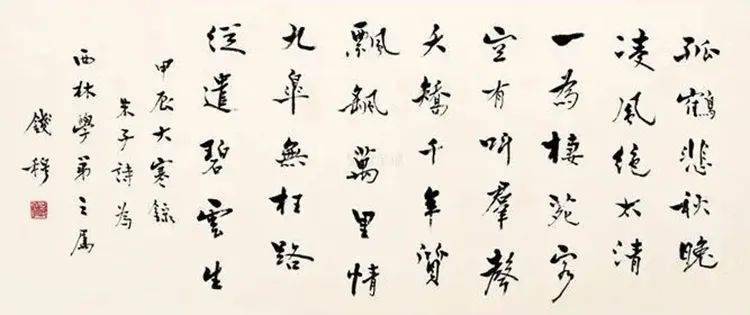 孤鶴悲秋晚
凌風絕太清
一為棲苑客
空有叫羣聲
夭矯千年質
飄颻萬里情
九皋無枉路
從遣碧雲生
甲辰大寒錄
朱子詩為
西林學弟之屬
錢穆